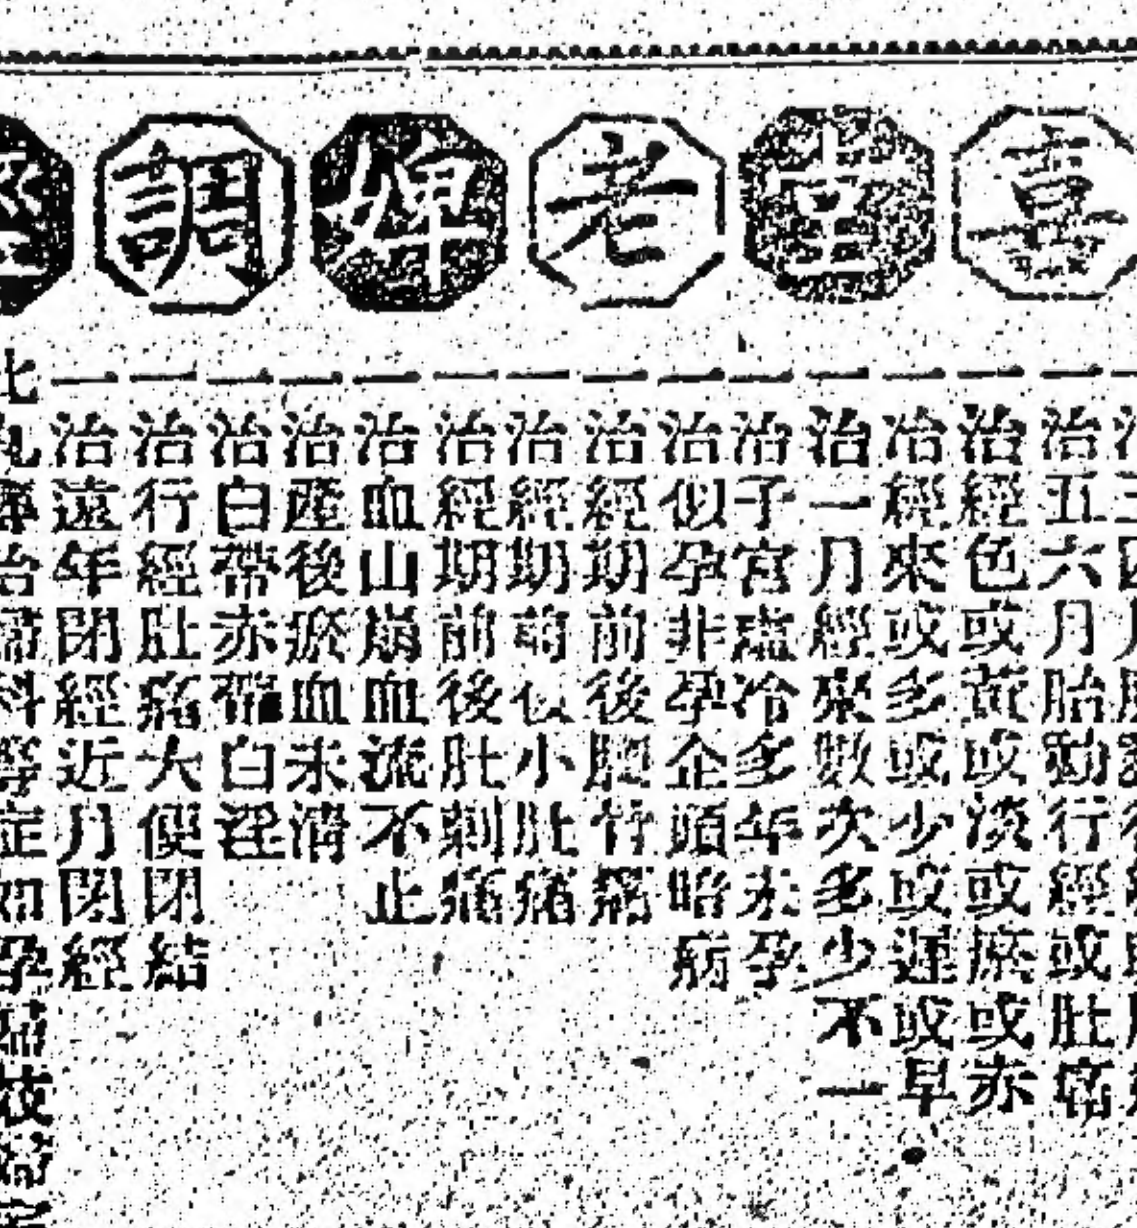 喜堂老婢調經
一治五六月胎動行經或肚痛
一治經色或黃或淡或瘀或赤
一治經來或多或少或遲或早
一治一月經來數次多少不一
一治子宮寒冷多年未孕
一治似孕非孕企頭暗病
一治經期前後腰骨痛
一治經期前後小肚痛
一治經期前後肚刺痛
一治血山崩血流不止
一治產後瘀血未清
一治白帶赤帶白淫
一治行經肚痛大便閉結
一治遠年閉經近月閉經